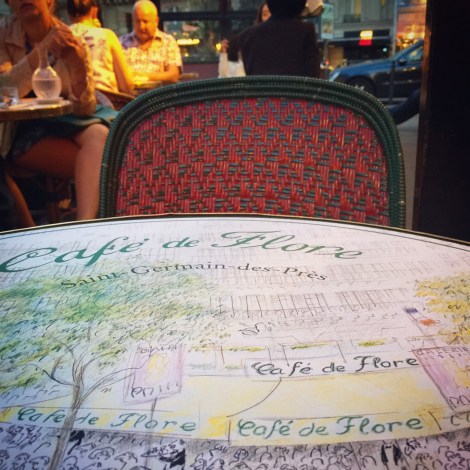 Café de Flore
Saint-Germain-des-Prés
Café de Flore
Café de FLORE
Café de FLORE